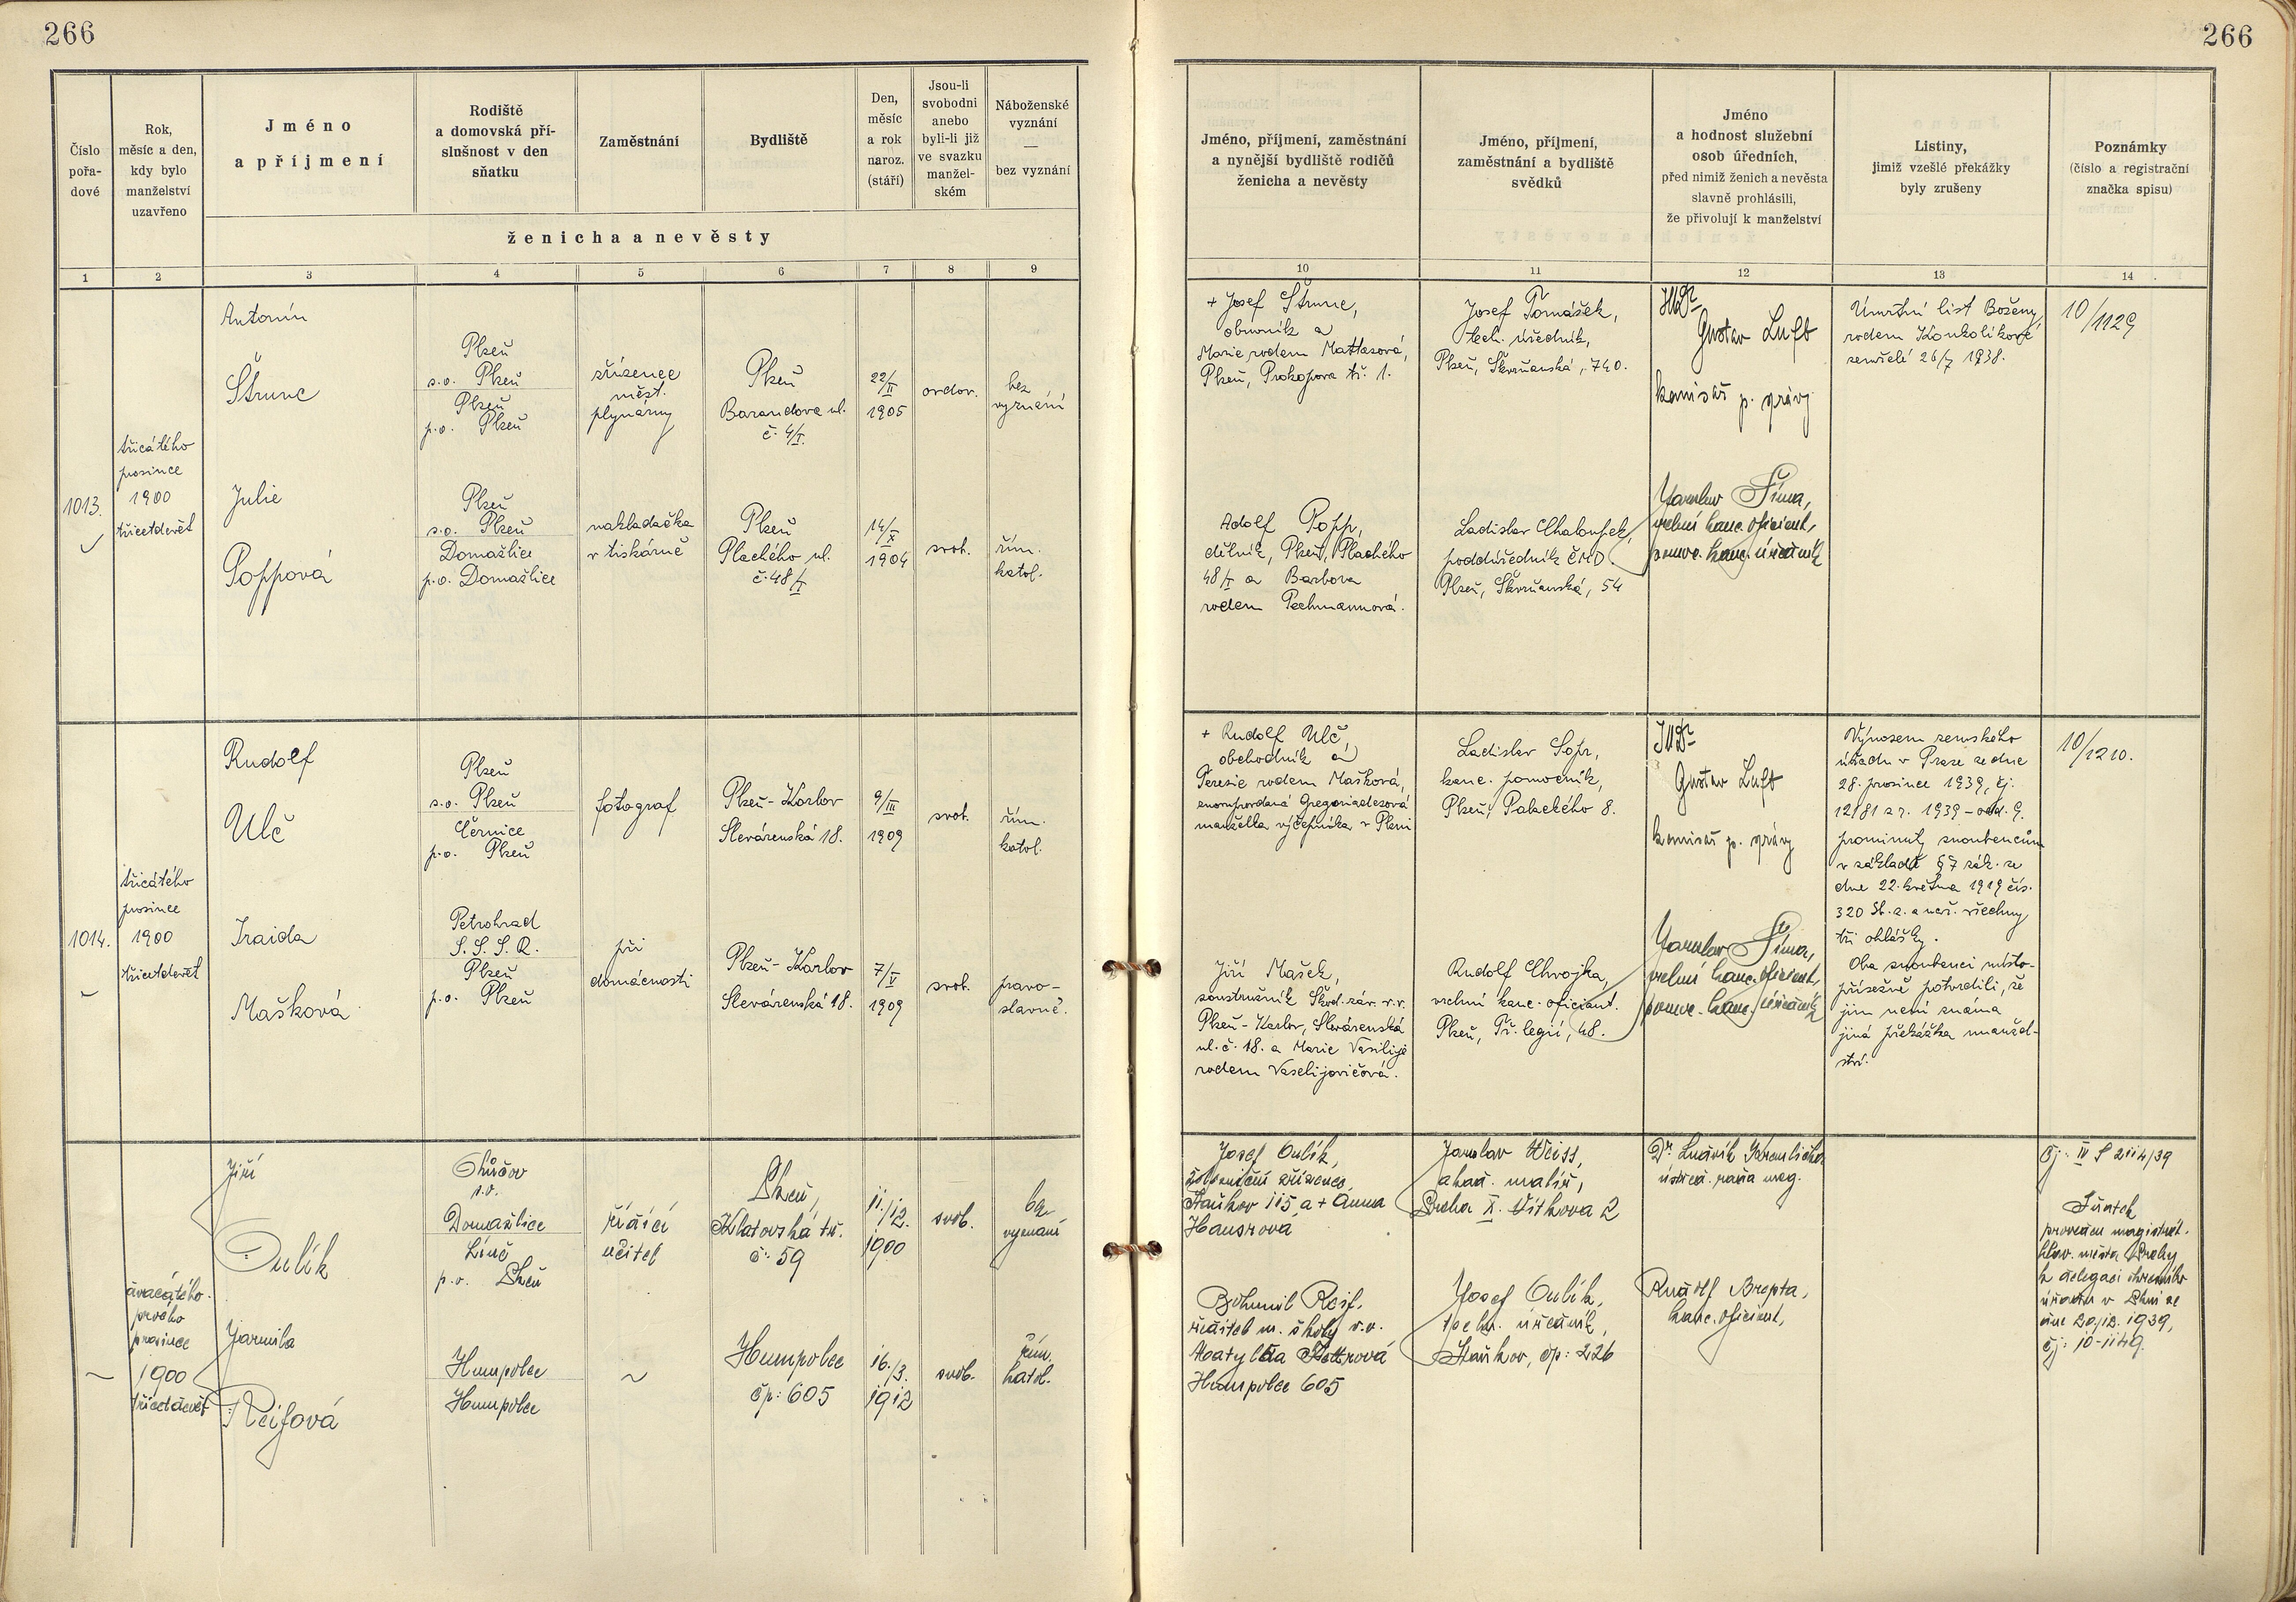 266
266
Číslo
pořa-
dové
Rok,
měsíc a den,
kdy bylo
manželství
uzavřeno
Jméno
a příjmení
Rodiště
a domovská pří-
slušnost v den
sňatku
Zaměstnání
Bydliště
Den,
měsíc
a rok
naroz.
(stáří)
Jsou-li
svobodni
anebo
byli-li již
ve svazku
manžel-
ském
Náboženské
vyznání
—
bez vyznání
ženicha a nevěsty
Jméno, příjmení, zaměstnání
a nynější bydliště rodičů
ženicha a nevěsty
Jméno, příjmení,
zaměstnání a bydliště
svědků
Jméno
a hodnost služební
osob úředních,
před nimiž ženich a nevěsta
slavně prohlásili,
že přivolují k manželství
Listiny,
jimiž vzešlé překážky
byly zrušeny
Poznámky
(číslo a registrační
značka spisu)
1 2 3 4 5 6 7 8 9 10 11 12 13 14
1013.
třicátého
prosince
1900
třicetdevět
Antonín
Štrunc
Plzeň
s.o. Plzeň
Plzeň
p.o. Plzeň
zřízenec
měst.
plynárny
Plzeň
Barandova ul.
č. 4/I.
22/II
1905
ovdov.
bez
vyznání
Julie
Poppová
Plzeň
s.o. Plzeň
Domažlice
p.o. Domažlice
nakladačka
v tiskárně
Plzeň
Plachého ul.
č. 48/I
14/X
1904
svob.
řím.
katol.
+ Josef Štrunc,
obuvník a
Marie rodem Mattasová,
Plzeň, Prokopova tř. 1.
Adolf Popp,
dělník, Plzeň, Plachého
48/I a Barbora
rodem Pechmannová.
Josef Tomášek,
tech. úředník,
Plzeň, Škvrňanská, 740.
Ladislav Chaloupek,
podúředník ČMD.
Plzeň, Škvrňanská, 54
JUDr
Gustav Luft
komisař p. správy
Jaroslav Šíma,
vrchní kanc. oficiant,
pomoc. kanc. úředník
Úmrtní list Boženy
rodem Koukolíkové
zemřelé 26/7 1938.
10/1129
1014.
třicátého
prosince
1900
třicetdevět
Rudolf
Ulč
Plzeň
s.o. Plzeň
Černice
p.o. Plzeň
fotograf
Plzeň-Karlov
Slevárenská 18.
9/III
1909
svob.
řím.
katol.
Iraida
Mašková
Petrohrad
S.S.S.R.
Plzeň
p.o. Plzeň
při
domácnosti
Plzeň-Karlov
Slevárenská 18.
7/V
1909
svob.
pravo-
slavné.
+ Rudolf Ulč,
obchodník a
Terezie rodem Mašková,
znovuprovdaná Gregoriadesová
manželka výčepníka v Plzni
Jiří Mašek,
soustružník Škod. záv. v.v.
Plzeň-Karlov, Slevárenská
ul. č. 18. a Marie Vasilije
rodem Vaselijovičová.
Ladislav Šopr,
kanc. pomocník,
Plzeň, Palackého 8.
Rudolf Chvojka,
vrchní kanc. oficiant.
Plzeň, Tř. legií, 48.
JUDr
Gustav Luft
komisař p. správy
Jaroslav Šíma,
vrchní kanc. oficiant,
pomoc. kanc. úředník
Výnosem zemského
úřadu v Praze ze dne
28. prosince 1939, čj.
12181 z r. 1939 - odd. 9.
prominuty snoubencům
v základě § 7 zák. ze
dne 22. května 1919 čís.
320 Sb. z. a nař. všechny
tři ohlášky.
Oba snoubenci místo-
přísežně potvrdili, že
jim není známa
jiná překážka manžel-
ství.
10/1210.
~
dvacátého
prvého
prosince
1900
třicetdevět
Jiří
Oulík
s.o.
Domažlice
Líně
p.o. Plzeň
řídící
učitel
Plzeň,
Klatovská tř.
č: 59
11./12.
1900
svob.
bez
vyznání
Jarmila
Reifová
Humpolec
Humpolec
~
Humpolec
čp: 605
16./3.
1912
svob.
řím.
katol.
Josef Oulík,
železniční zřízenec,
Staňkov 115, a + Anna
Hausrová
Bohumil Reif,
ředitel m. školy v.v.
Matylda
Humpolec 605
Jaroslav Weiss,
akad. malíř,
Praha X. Vítkova 2
Josef Oulík,
techn. úředník,
Staňkov, čp: 226
Dr. Ludvík
ústřed. rada mag.
Rudolf Brepta,
kanc. oficiant,
čj: IV S 2114/39
Sňatek
proveden magistrát.
hlav. města Prahy
k delegaci okresního
úřadu v Plzni ze
dne 20./12. 1939,
čj: 10-1149.